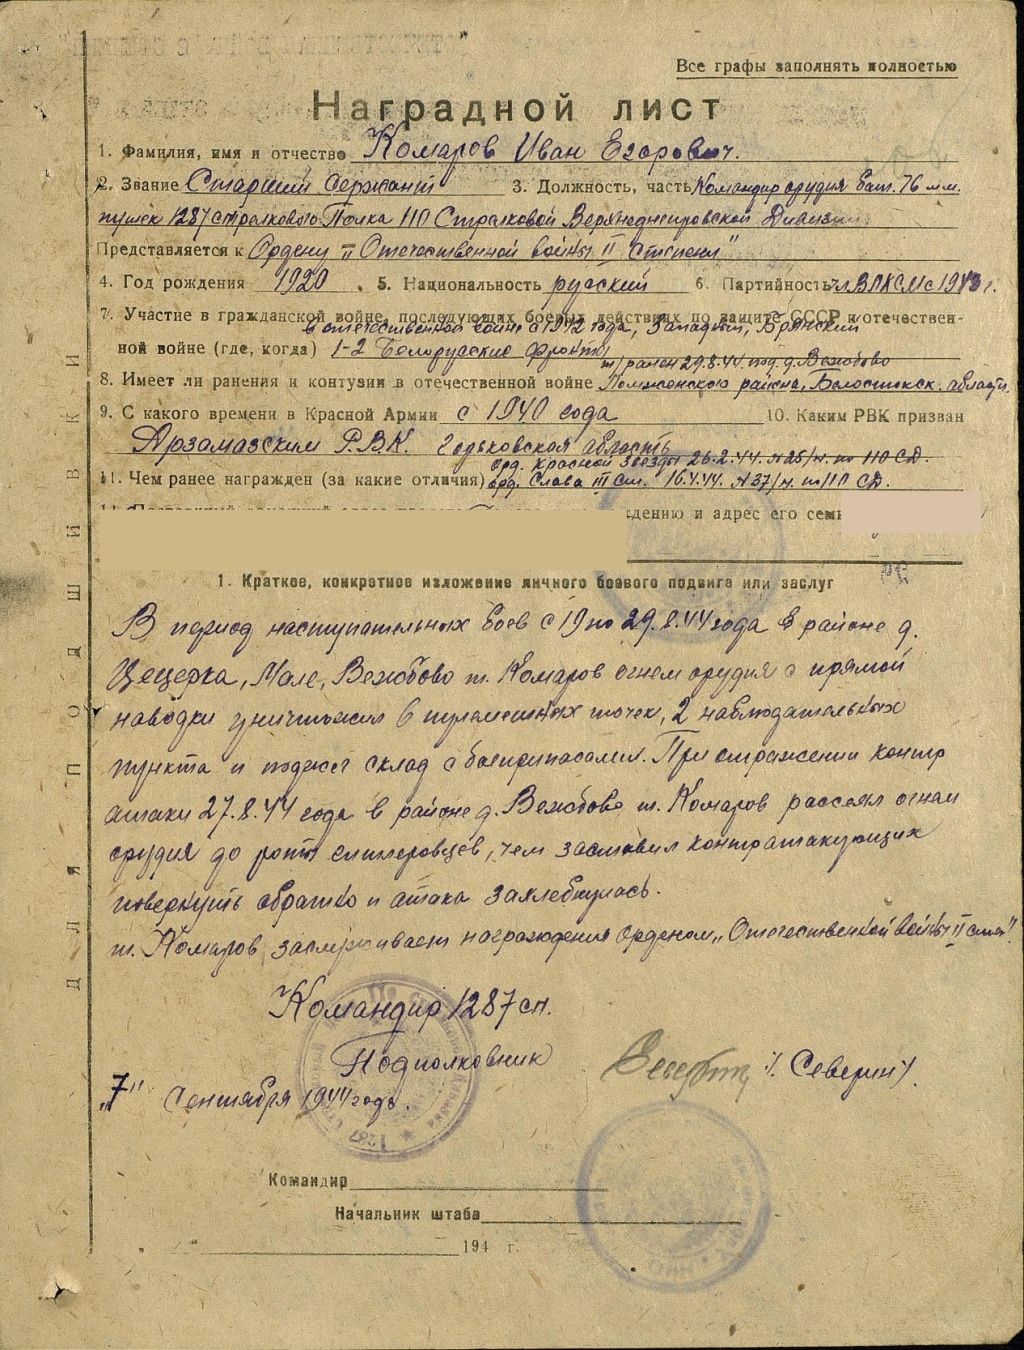 Все графы заполнять полностью
Наградной лист
1. Фамилия, имя и отчество Комаров Иван Егорович.
2. Звание Старший Сержант 3. Должность, часть Командир орудия бат. 76 м.м.
пушек 1287 стрелкового Полка 110 Стрелковой Верхнеднепровской Дивизии.
Представляется к Ордену "Отечественной войны II степени"
4. Год рождения 1920. 5. Национальность русский 6. Партийность чл. ВЛКСМ с 1943 г.
7. Участие в гражданской войне, последующих боевых действиях по защите СССР и отечествен-
в отечественной войне с 1942 года, Западный, Брянский
ной войне (где, когда) 1-2 Белорусские фронты
т/ранен 29.8.44 под д. Вежбово
8. Имеет ли ранения и контузии в отечественной войне Ломженского района, Белостокск. области.
9. С какого времени в Красной Армии с 1940 года 10. Каким РВК призван
Арзамазским Р.В.К. Горьковская область
орд. Красной Звезды 26.2.44. №25/н. по 110 СД.
11. Чем ранее награжден (за какие отличия) орд. Слава III ст. 16.4.44. №37/н. по 110 СД.
ждению и адрес его семь
1. Краткое, конкретное изложение личного боевого подвига или заслуг
В период наступательных боев с 19 по 29.8.44 года в районе д.
Цецерка, Мале, Вежбово т. Комаров огнем орудия с прямой
наводки уничтожил 6 пулеметных точек, 2 наблюдательных
пункта и поджег склад с боеприпасами. При отражении контр
атаки 27.8.44 года в районе д. Вежбово т. Комаров рассеял огнем
орудия до роты гитлеровцев, чем заставил контратакующих
повернуть обратно и атака захлебнулась.
т. Комаров заслуживает награждения орденом "Отечественной войны II степ".
Командир 1287 сп.
Подполковник /Северин/.
"7" Сентября 1944 года.
Командир
Начальник штаба
" 194 г.
ДЛЯ ПОДШИВКИ